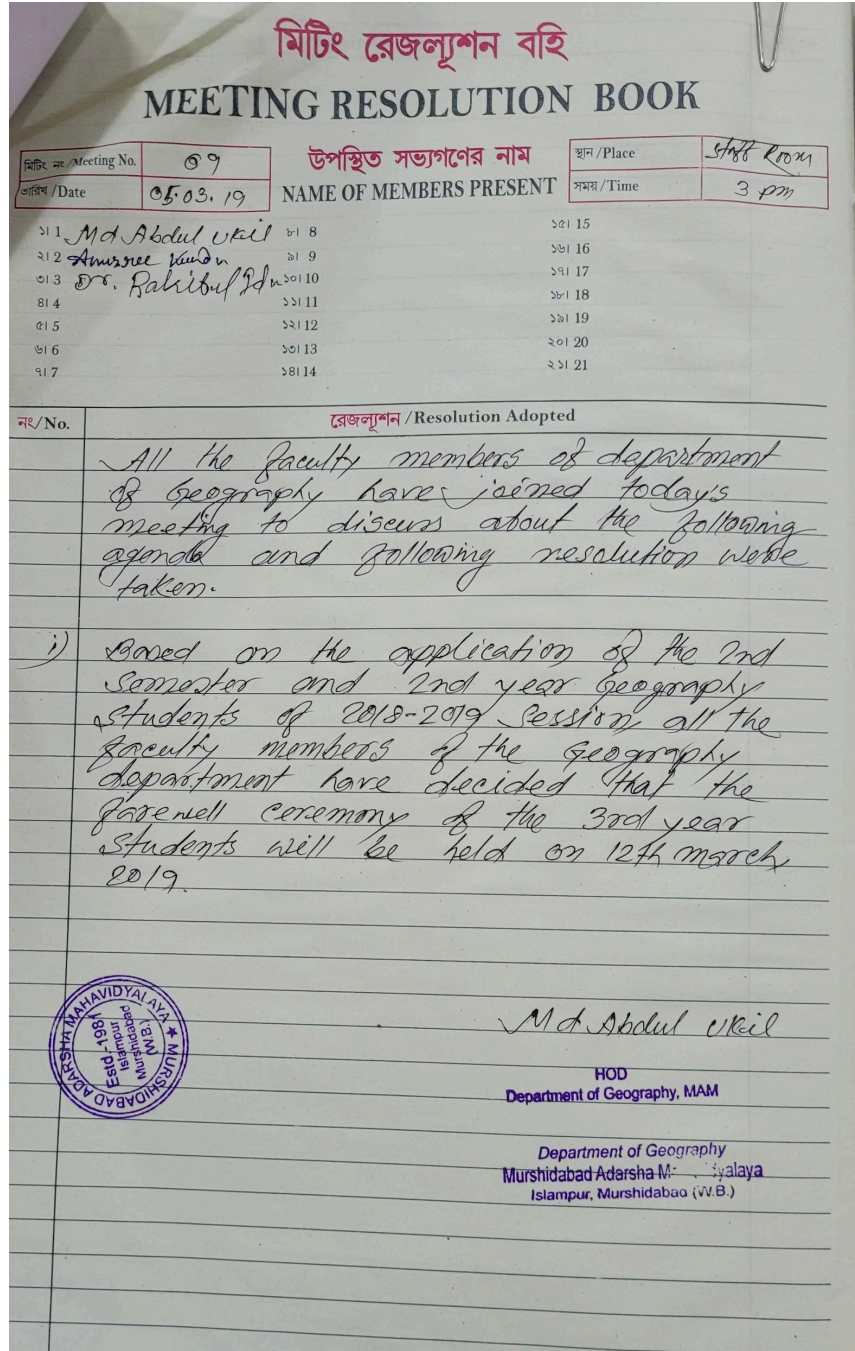 মিটিং রেজল্যূশন বহি
MEETING RESOLUTION BOOK
মিটিং নং /Meeting No. 09
তারিখ /Date 05.03.19
উপস্থিত সভ্যগণের নাম
NAME OF MEMBERS PRESENT
স্থান /Place Staff Room
সময় /Time 3 pm
১। 1 Md Abdul Ukil
২। 2 Anusree Kundu
৩। 3 Dr. Rakibul
৪। 4
৫। 5
৬। 6
৭। 7
৮। 8
৯। 9
১০। 10
১১। 11
১২। 12
১৩। 13
১৪। 14
১৫। 15
১৬। 16
১৭। 17
১৮। 18
১৯। 19
২০। 20
২১। 21
নং/No.
রেজল্যূশন /Resolution Adopted
All the faculty members of department
of Geography have joined today's
meeting to discuss about the following
agenda and following resolution were
taken.
i) Based on the application of the 2nd
Semester and 2nd year Geography
students of 2018-2019 Session, all the
faculty members of the Geography
department have decided that the
farewell ceremony of the 3rd year
students will be held on 12th march,
2019.
MURSHIDABAD ADARSHA MAHAVIDYALAYA ★
Estd.-1981
Islampur
Murshidabad
(W.B.)
Md Abdul Ukil
HOD
Department of Geography, MAM
Department of Geography
Murshidabad Adarsha
Islampur, Murshidabad (W.B.)